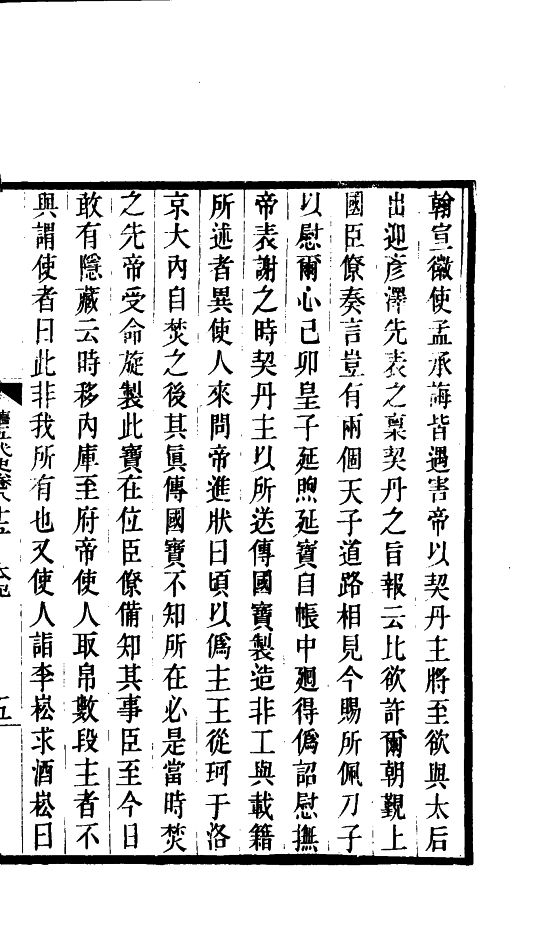 翰宣徽使孟承誨皆遇害帝以契丹主將至欲與太后
出迎彥澤先表之稟契丹之旨報云比欲許爾朝覲上
國臣僚奏言豈有兩個天子道路相見今賜所佩刀子
以慰爾心己卯皇子延煦延寶自帳中廻得僞詔慰撫
帝表謝之時契丹主以所送傳國寶製造非工與載籍
所述者異使人來問帝進狀曰頃以僞主王從珂于洛
京大內自焚之後其眞傳國寶不知所在必是當時焚
之先帝受命旋製此寶在位臣僚備知其事臣至今日
敢有隱藏云時移內庫至府帝使人取帛數段主者不
與謂使者曰此非我所有也又使人詣李崧求酒崧曰
舊五代史卷八十五 本紀 五